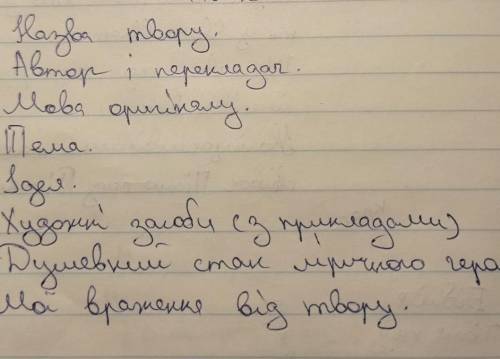 Назва твору.
Автор і перекладач.
Мова оригіналу.
Тема.
Ідея.
Художні засоби (з прикладами)
Душевний стан ліричного геро
Мої враження від твору.